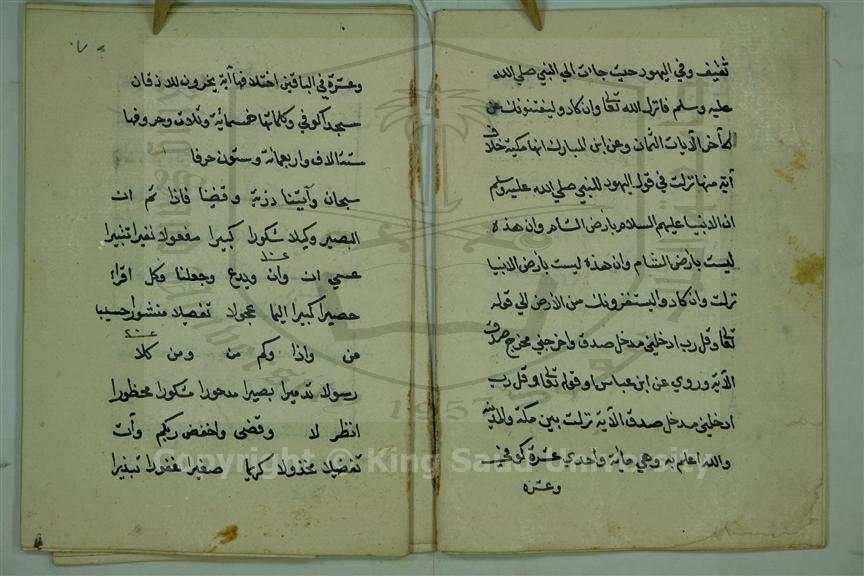 ثقيف وفي اليهود حيث جات الي النبي صلي الله
عليه وسلم فانزل الله تعالى وان كادوا ليفتنونك عن
آخر الآيات الثمان وعن ابن المبارك انها مكية خلاف
آية منها نزلت في قول اليهود للنبي صلي الله عليه وسلم
ان الانبيا عليهم السلام بارض الشام وان هذه
ليست بارض الشام وان هذه ليست بارض الانبيا
نزلت وان كادوا ليستفزونك من الارض الي قوله
تعالى وقل رب ادخلني مدخل صدق واخرجني مخرج صدق
الآية وروي عن ابن عباس وقوله تعالى وقل رب
ادخلني مدخل صدق الآية نزلت بين مكة والمدينة
والله اعلم به وهي ماية واحدي عشرة كوفي
وعشره
وعشرة في الباقين اختلافها آية يخرون للاذقان
سجدا كوفي وكلماتها خمسماية وثلاث وحروفها
ستة الاف واربعماية وستون حرفا
سبحان وآتينا ذرية وقضينا فاذا ثم ان
البصير وكيلا شكورا كبيرا مفعولا نفيرا تتبيرا
عسي ان وان ويدع وجعلنا وكل اقرأ
حصيرا كبيرا اليما عجولا تفصيلا منشورا حسيبا
من واذا وكم من ومن كلا
رسولا تدميرا بصيرا مدحورا مشكورا محظورا
انظر لا وقضى واخفض ربكم وآت
تفضيلا مخذولا كريما صغيرا غفورا تبذيرا
Copyright © King Saud University
1957